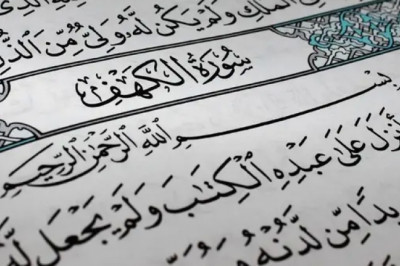 الملك ولم يكن له ولي من الذل
سورة الكهف
بسم الله الرحمن الرحيم
أنزل على عبده الكتب ولم يجعل له
من لدنه و